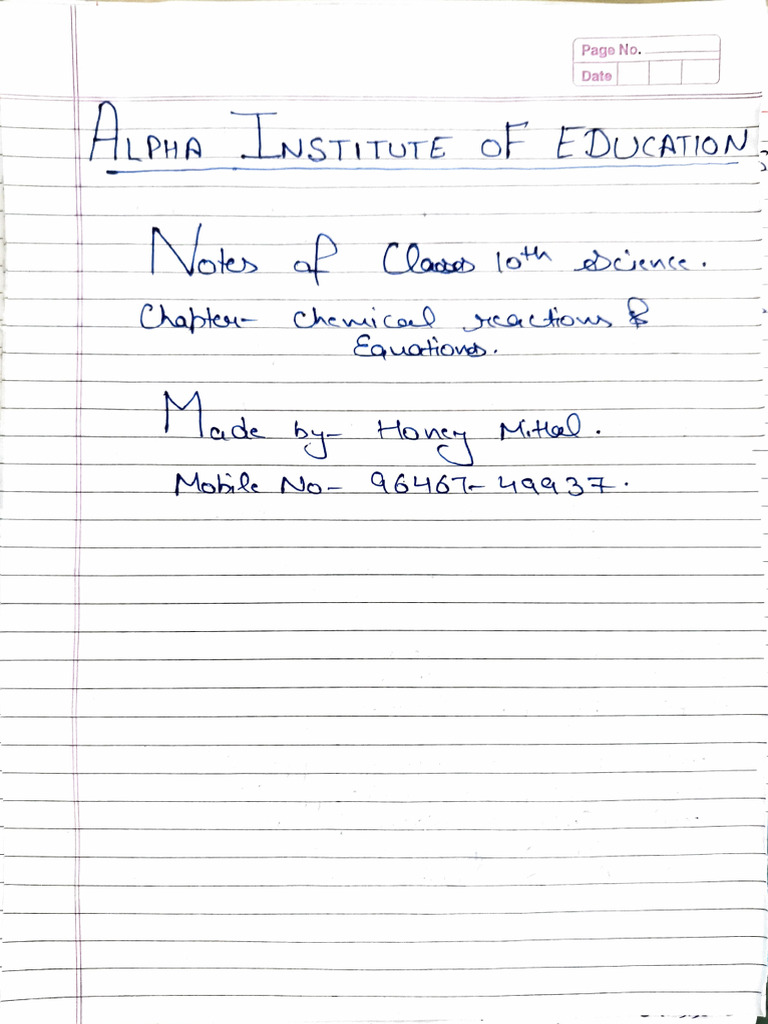 Page No.
Date
ALPHA INSTITUTE OF EDUCATION
Notes of Class 10th science.
Chapter- Chemical reactions &
Equations.
Made by- Honey Mittal.
Mobile No- 96467-49937.